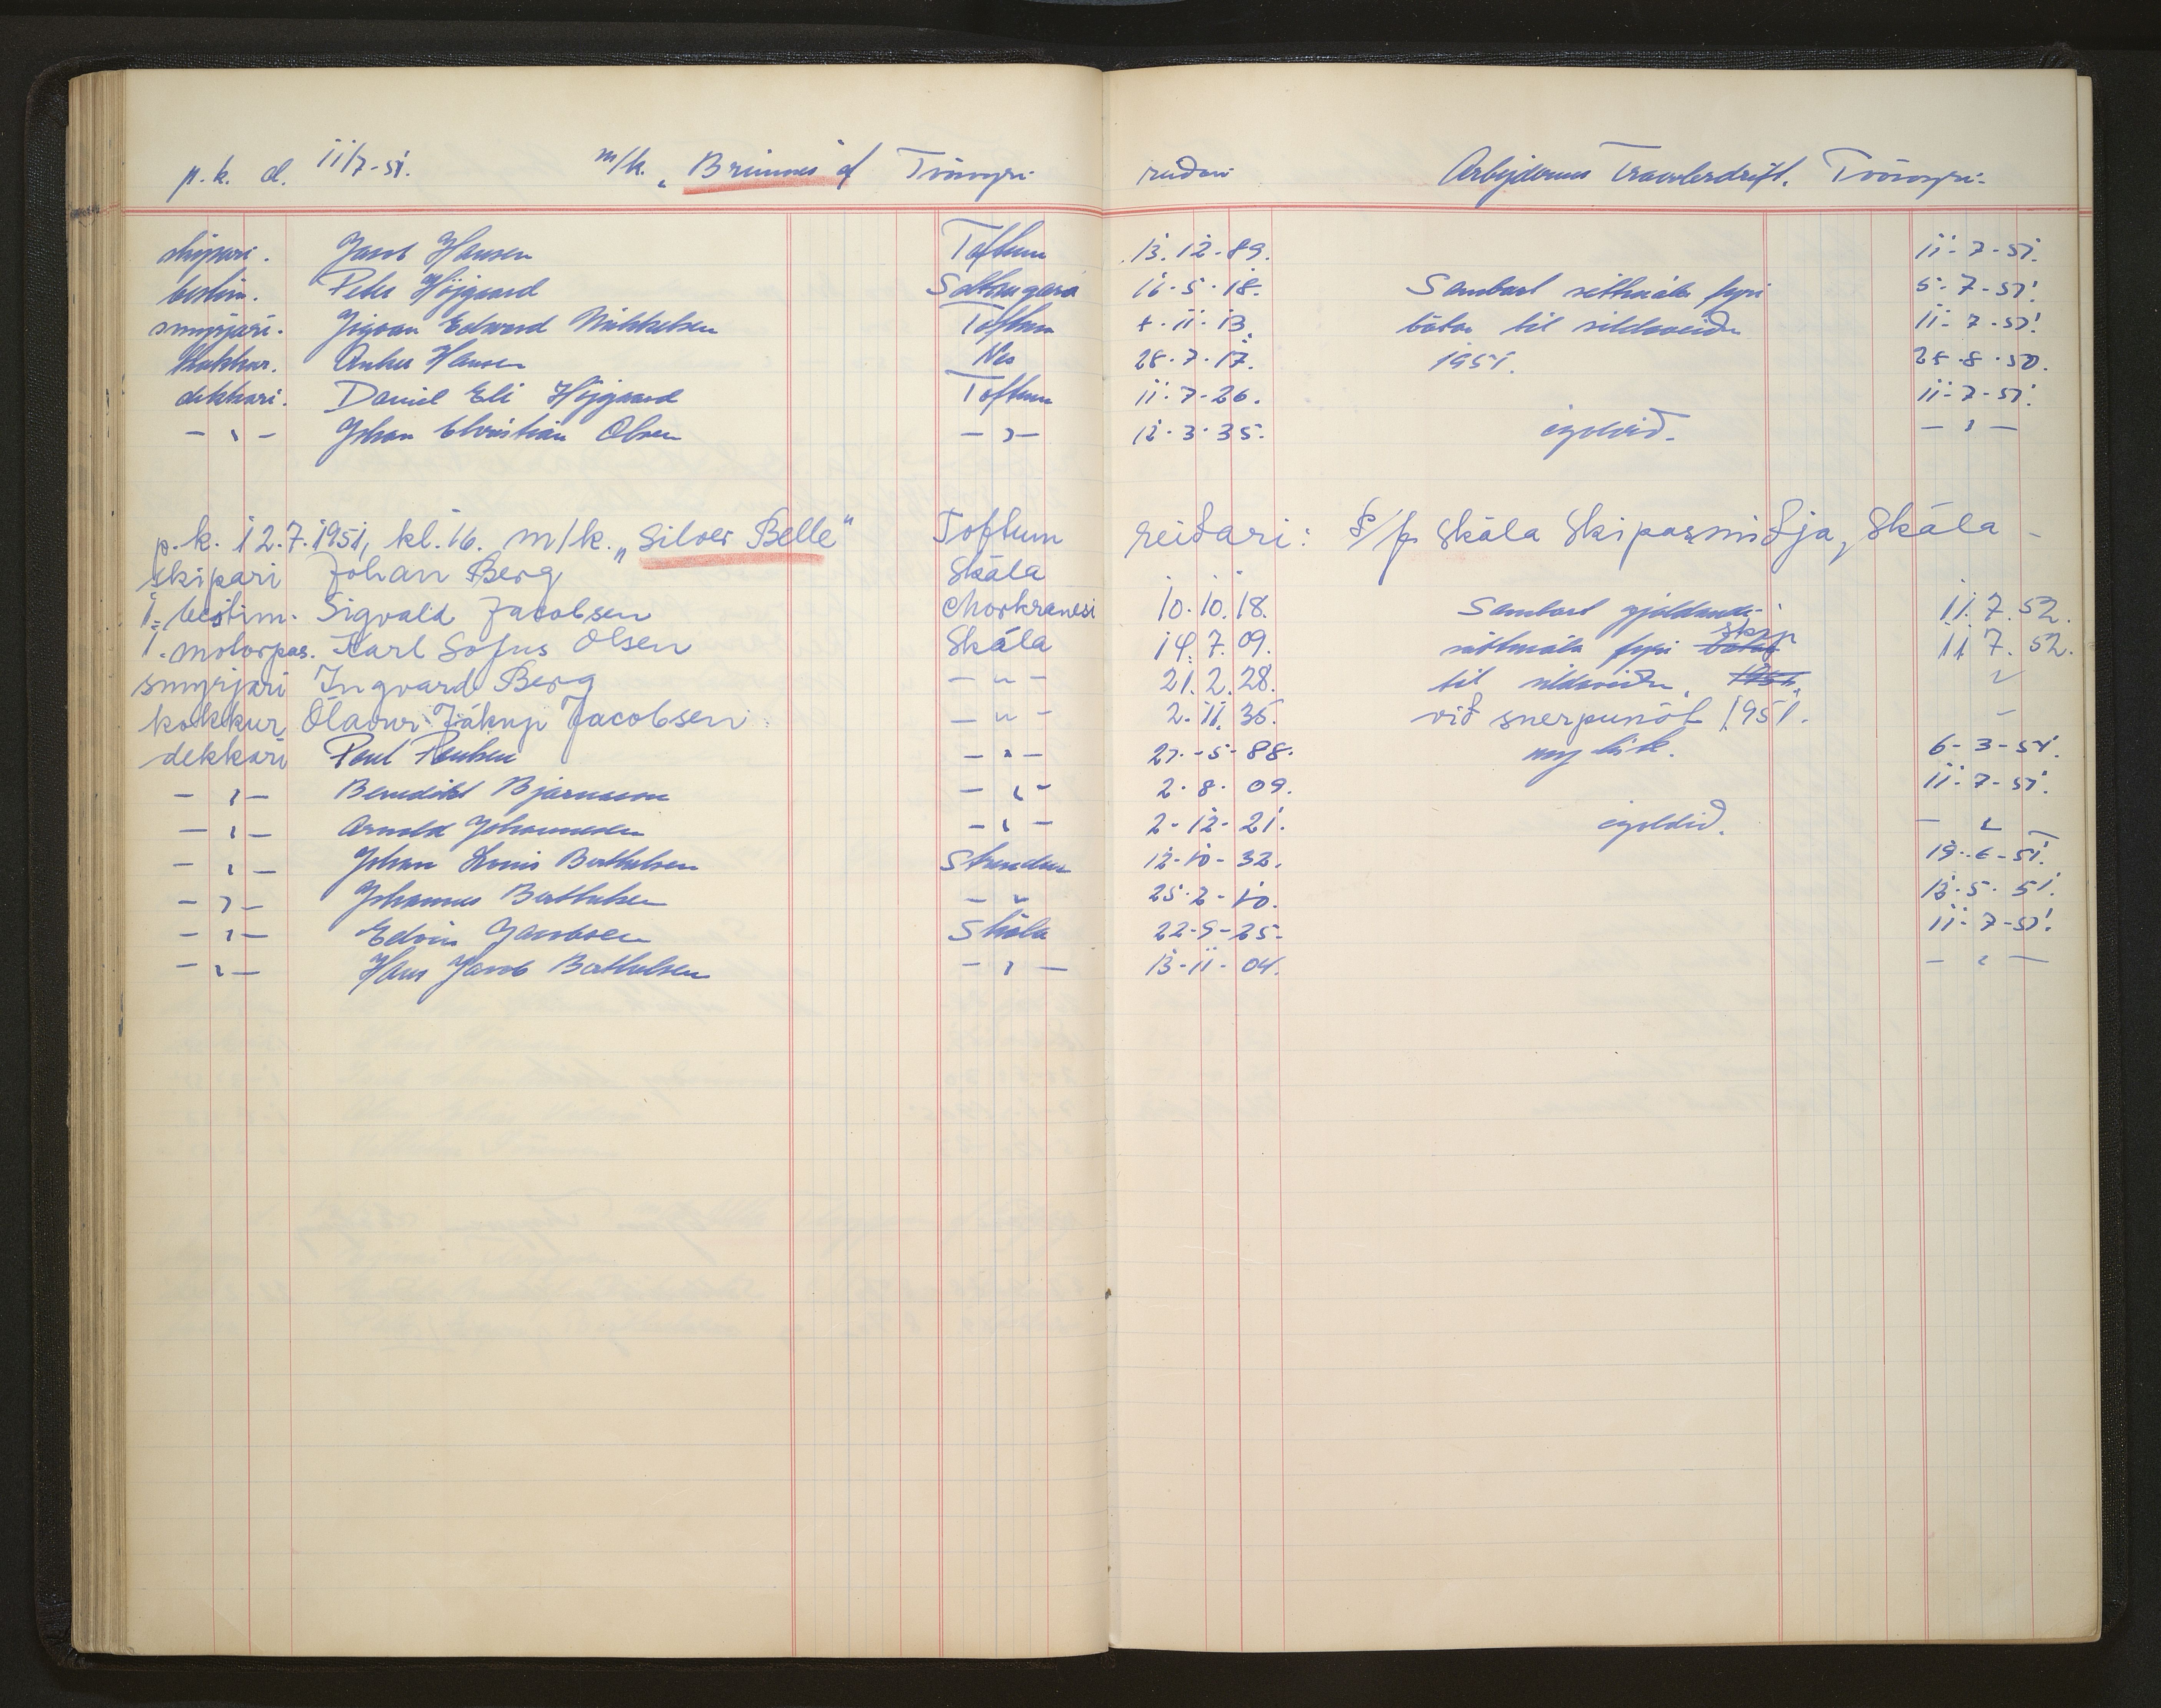 p. k. d. 11/7-51. m/k. „Brimnes" of Tvöroyri reiðari Arbejdernes Trawlerdrift. Tvöroyri-
skipari. Jacob Hansen Toftum 13.12-89. 11-7-51.
bestim. Peter Höjgaard Saltangará 16-5-18. Sambart sáttmála fyri 5-7-51.
smyrjari. Jigvan Edward Mikkelsen Toftum 4-11-13. bátar til sildaveiðu 11-7-51.
kokkur. Anker Hansen Nes 28.7.17. 1951. 28.8.50.
dekkari. Daniel Eli Höjgaard Toftum 11-7-26. 11-7-51.
- " - Johan Christian Olsen - " - 12.3.35. igoldið. - " -
p.k. 12.7.1951, kl. 16. m/k. „Silver Belle" Toftum reiðari: P/f Skála Skipasmiðja, Skála -
skipari Johan Berg Skála
1. bestim. Sigvald Jacobsen Morkranesi 10.10.18. Sambart gjaldandi 11.7.52.
1. motorpas. Karl Sofus Olsen Skála 14.7.09. sáttmála fyri bátar skip 11.7.52.
smyrjari Ingvard Berg - " - 21.2.28. til sildaveiðu, 1951, "
kokkur Ólavur Jákup Jacobsen - " - 2.11.35. við snerpunót 1951. -
dekkari Poul Poulsen - " - 27.-5-88. my bók. 6-3-51.
- " - Benedikt Bjarnason - " - 2.8.09. 11-7-51.
- " - Arnold Johannesen - " - 2-12-21. igoldið. - "
- " - Johan Louis Berthelsen Strendur 12-10-32. 19.-6-51.
- " - Johannes Berthelsen - " 25.2-10. 12.5.51.
- " - Edvin Jacobsen Skála 22-9-25- 11-7-51.
- " - Hans Jacob Berthelsen - " - 13-11-04. - " -